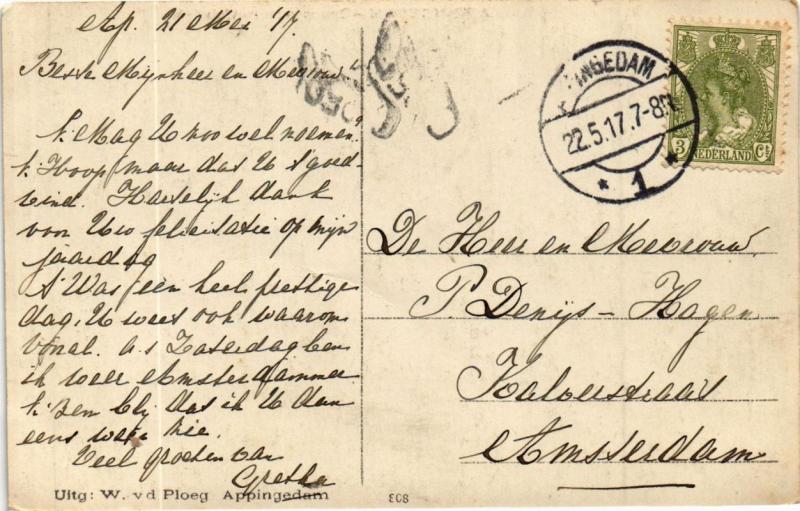 Ap. 21 Mei '17
Beste Mijnheer en Mevrouw
'k Mag U zoo wel noemen?
'k Hoop maar dat U 't goed
vind. Hartelijk dank
voor Uw felicitatie op mijn
jaardag
't Was een heel prettige
dag, U weet ook waarom
vooral. a.s Zaterdag ben
ik weer Amsterdammer
'k Ben blij dat ik U dan
eens weer zie.
Veel groeten van
Gretha
Uitg: W. v d Ploeg Appingedam
808
INGEDAM
22.5.17.7-8
1
3 Ct
NEDERLAND
De Heer en Mevrouw
P. Denijs-Hagen
Kalverstraat
Amsterdam